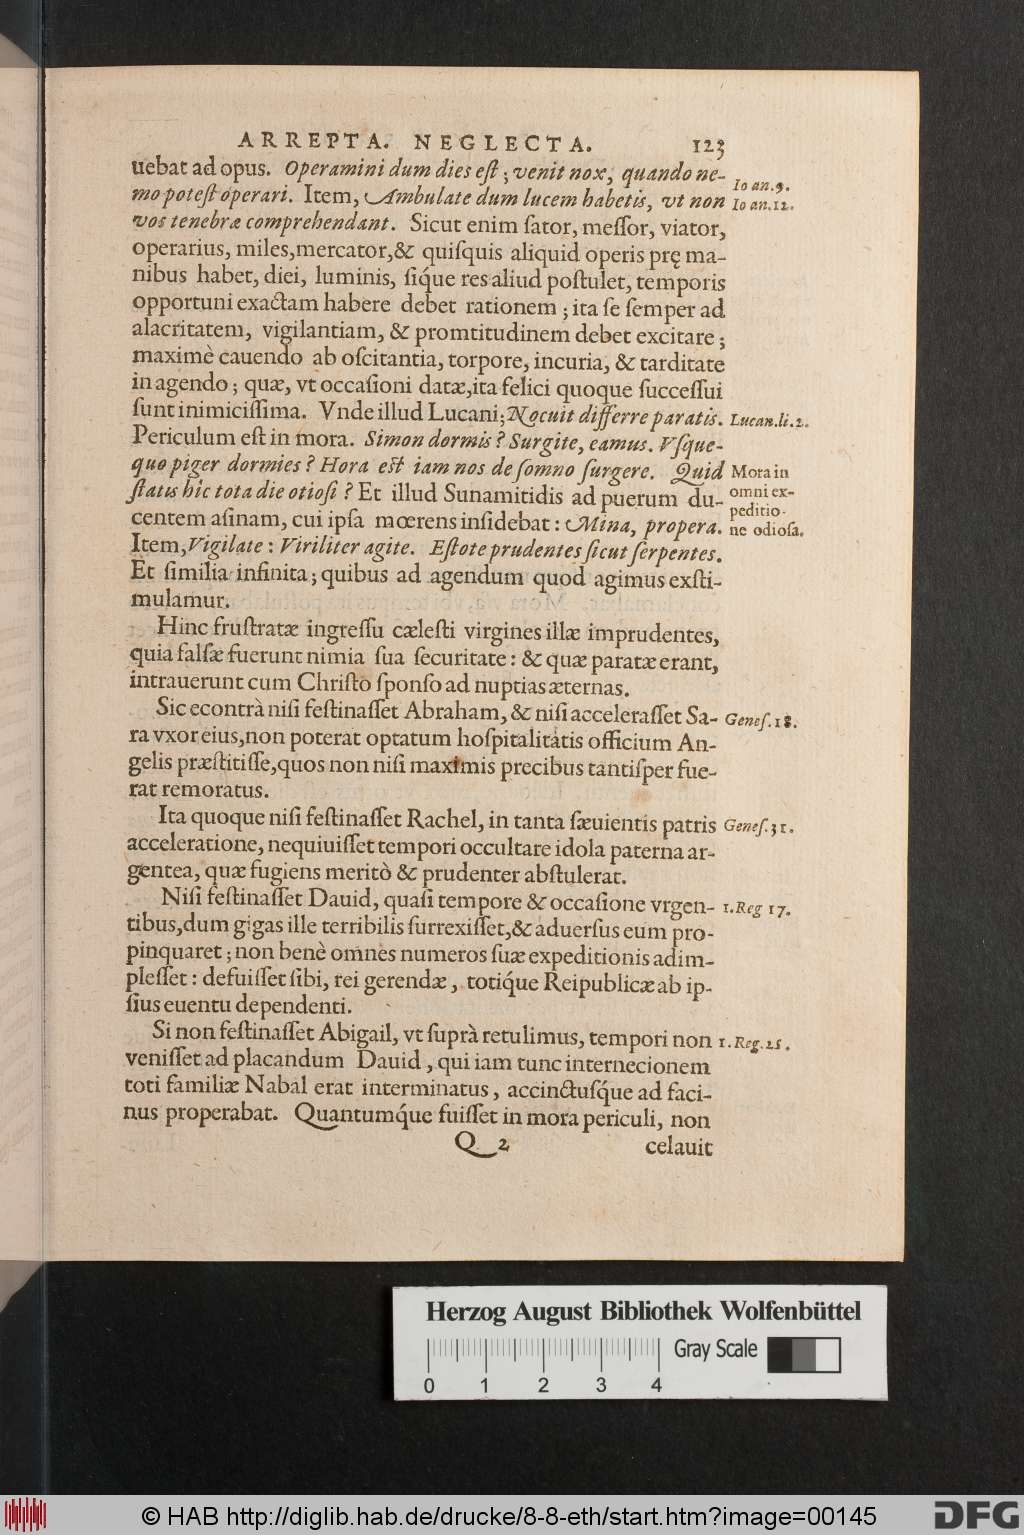 ARREPTA. NEGLECTA. 123
uebat ad opus. Operamini dum dies eſt; venit nox, quando ne-
mo poteſt operari. Item, Ambulate dum lucem habetis, vt non
vos tenebræ comprehendant. Sicut enim ſator, meſſor, viator,
operarius, miles, mercator, & quiſquis aliquid operis prę ma-
nibus habet, diei, luminis, ſiq́ue res aliud poſtulet, temporis
opportuni exactam habere debet rationem; ita ſe ſemper ad
alacritatem, vigilantiam, & promtitudinem debet excitare;
maximè cauendo ab oſcitantia, torpore, incuria, & tarditate
in agendo; quæ, vt occaſioni datæ, ita felici quoque ſucceſſui
ſunt inimiciſſima. Vnde illud Lucani; Nocuit differre paratis.
Periculum eſt in mora. Simon dormis? Surgite, eamus. Vſque-
quo piger dormies? Hora eſt iam nos de ſomno ſurgere. Quid
ſtatis hîc tota die otioſi? Et illud Sunamitidis ad puerum du-
centem aſinam, cui ipſa mœrens inſidebat: Mina, propera.
Item, Vigilate: Viriliter agite. Eſtote prudentes ſicut ſerpentes.
Et ſimilia infinita; quibus ad agendum quod agimus exſti-
mulamur.
Hinc fruſtratæ ingreſſu cæleſti virgines illæ imprudentes,
quia falſæ fuerunt nimia ſua ſecuritate: & quæ paratæ erant,
intrauerunt cum Chriſto ſponſo ad nuptias æternas.
Sic econtrà niſi feſtinaſſet Abraham, & niſi acceleraſſet Sa-
ra vxor eius, non poterat optatum hoſpitalitatis officium An-
gelis præſtitiſſe, quos non niſi maximis precibus tantiſper fue-
rat remoratus.
Ita quoque niſi feſtinaſſet Rachel, in tanta ſæuientis patris
acceleratione, nequiuiſſet tempori occultare idola paterna ar-
gentea, quæ fugiens meritò & prudenter abſtulerat.
Niſi feſtinaſſet Dauid, quaſi tempore & occaſione vrgen-
tibus, dum gigas ille terribilis ſurrexiſſet, & aduerſus eum pro-
pinquaret; non benè omnes numeros ſuæ expeditionis adim-
pleſſet: defuiſſet ſibi, rei gerendæ, totiq́ue Reipublicæ ab ip-
ſius euentu dependenti.
Si non feſtinaſſet Abigail, vt ſuprà retulimus, tempori non
veniſſet ad placandum Dauid, qui iam tunc internecionem
toti familiæ Nabal erat interminatus, accinctuſq́ue ad faci-
nus properabat. Quantumq́ue fuiſſet in mora periculi, non
Q 2 celauit
Ioan.9.
Ioan.12.
Lucan.li.2.
Mora in
omni ex-
peditio-
ne odioſa.
Geneſ.18.
Geneſ.31.
1.Reg 17.
1.Reg.25.
Herzog August Bibliothek Wolfenbüttel
Gray Scale
0 1 2 3 4
© HAB http://diglib.hab.de/drucke/8-8-eth/start.htm?image=00145
DFG